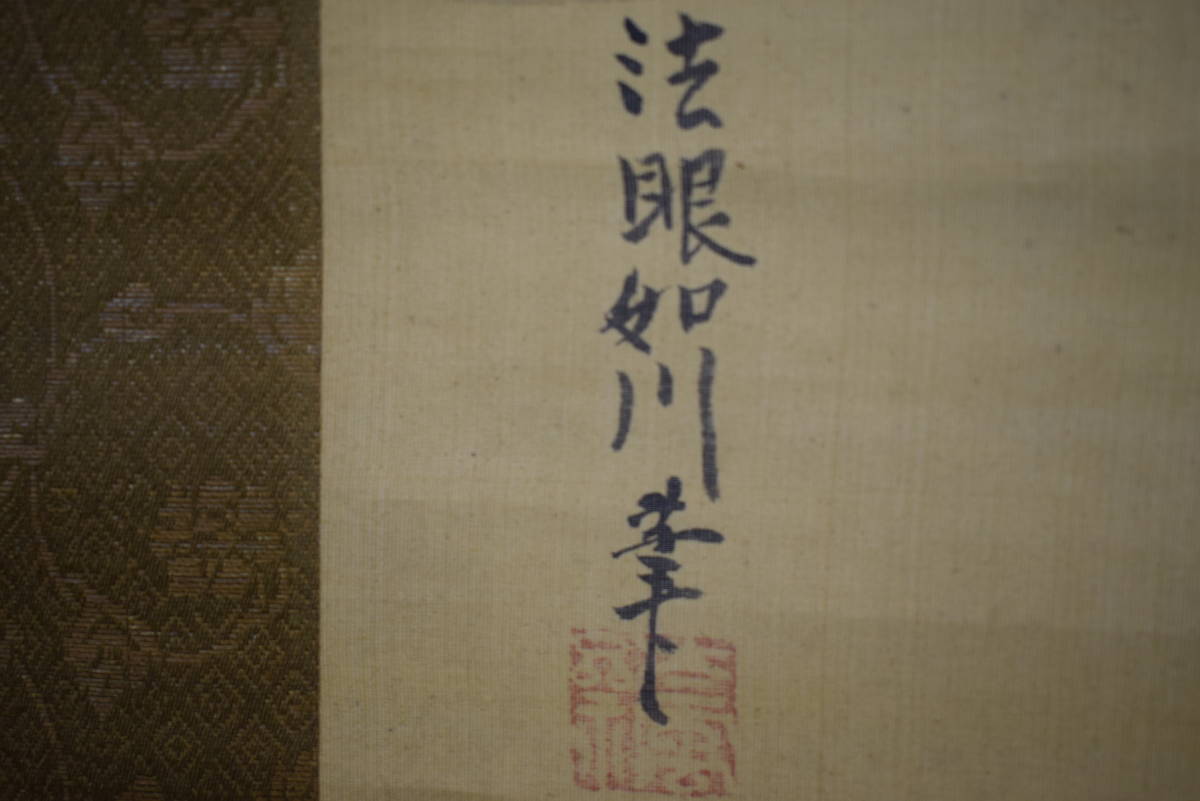 法眼如川筆